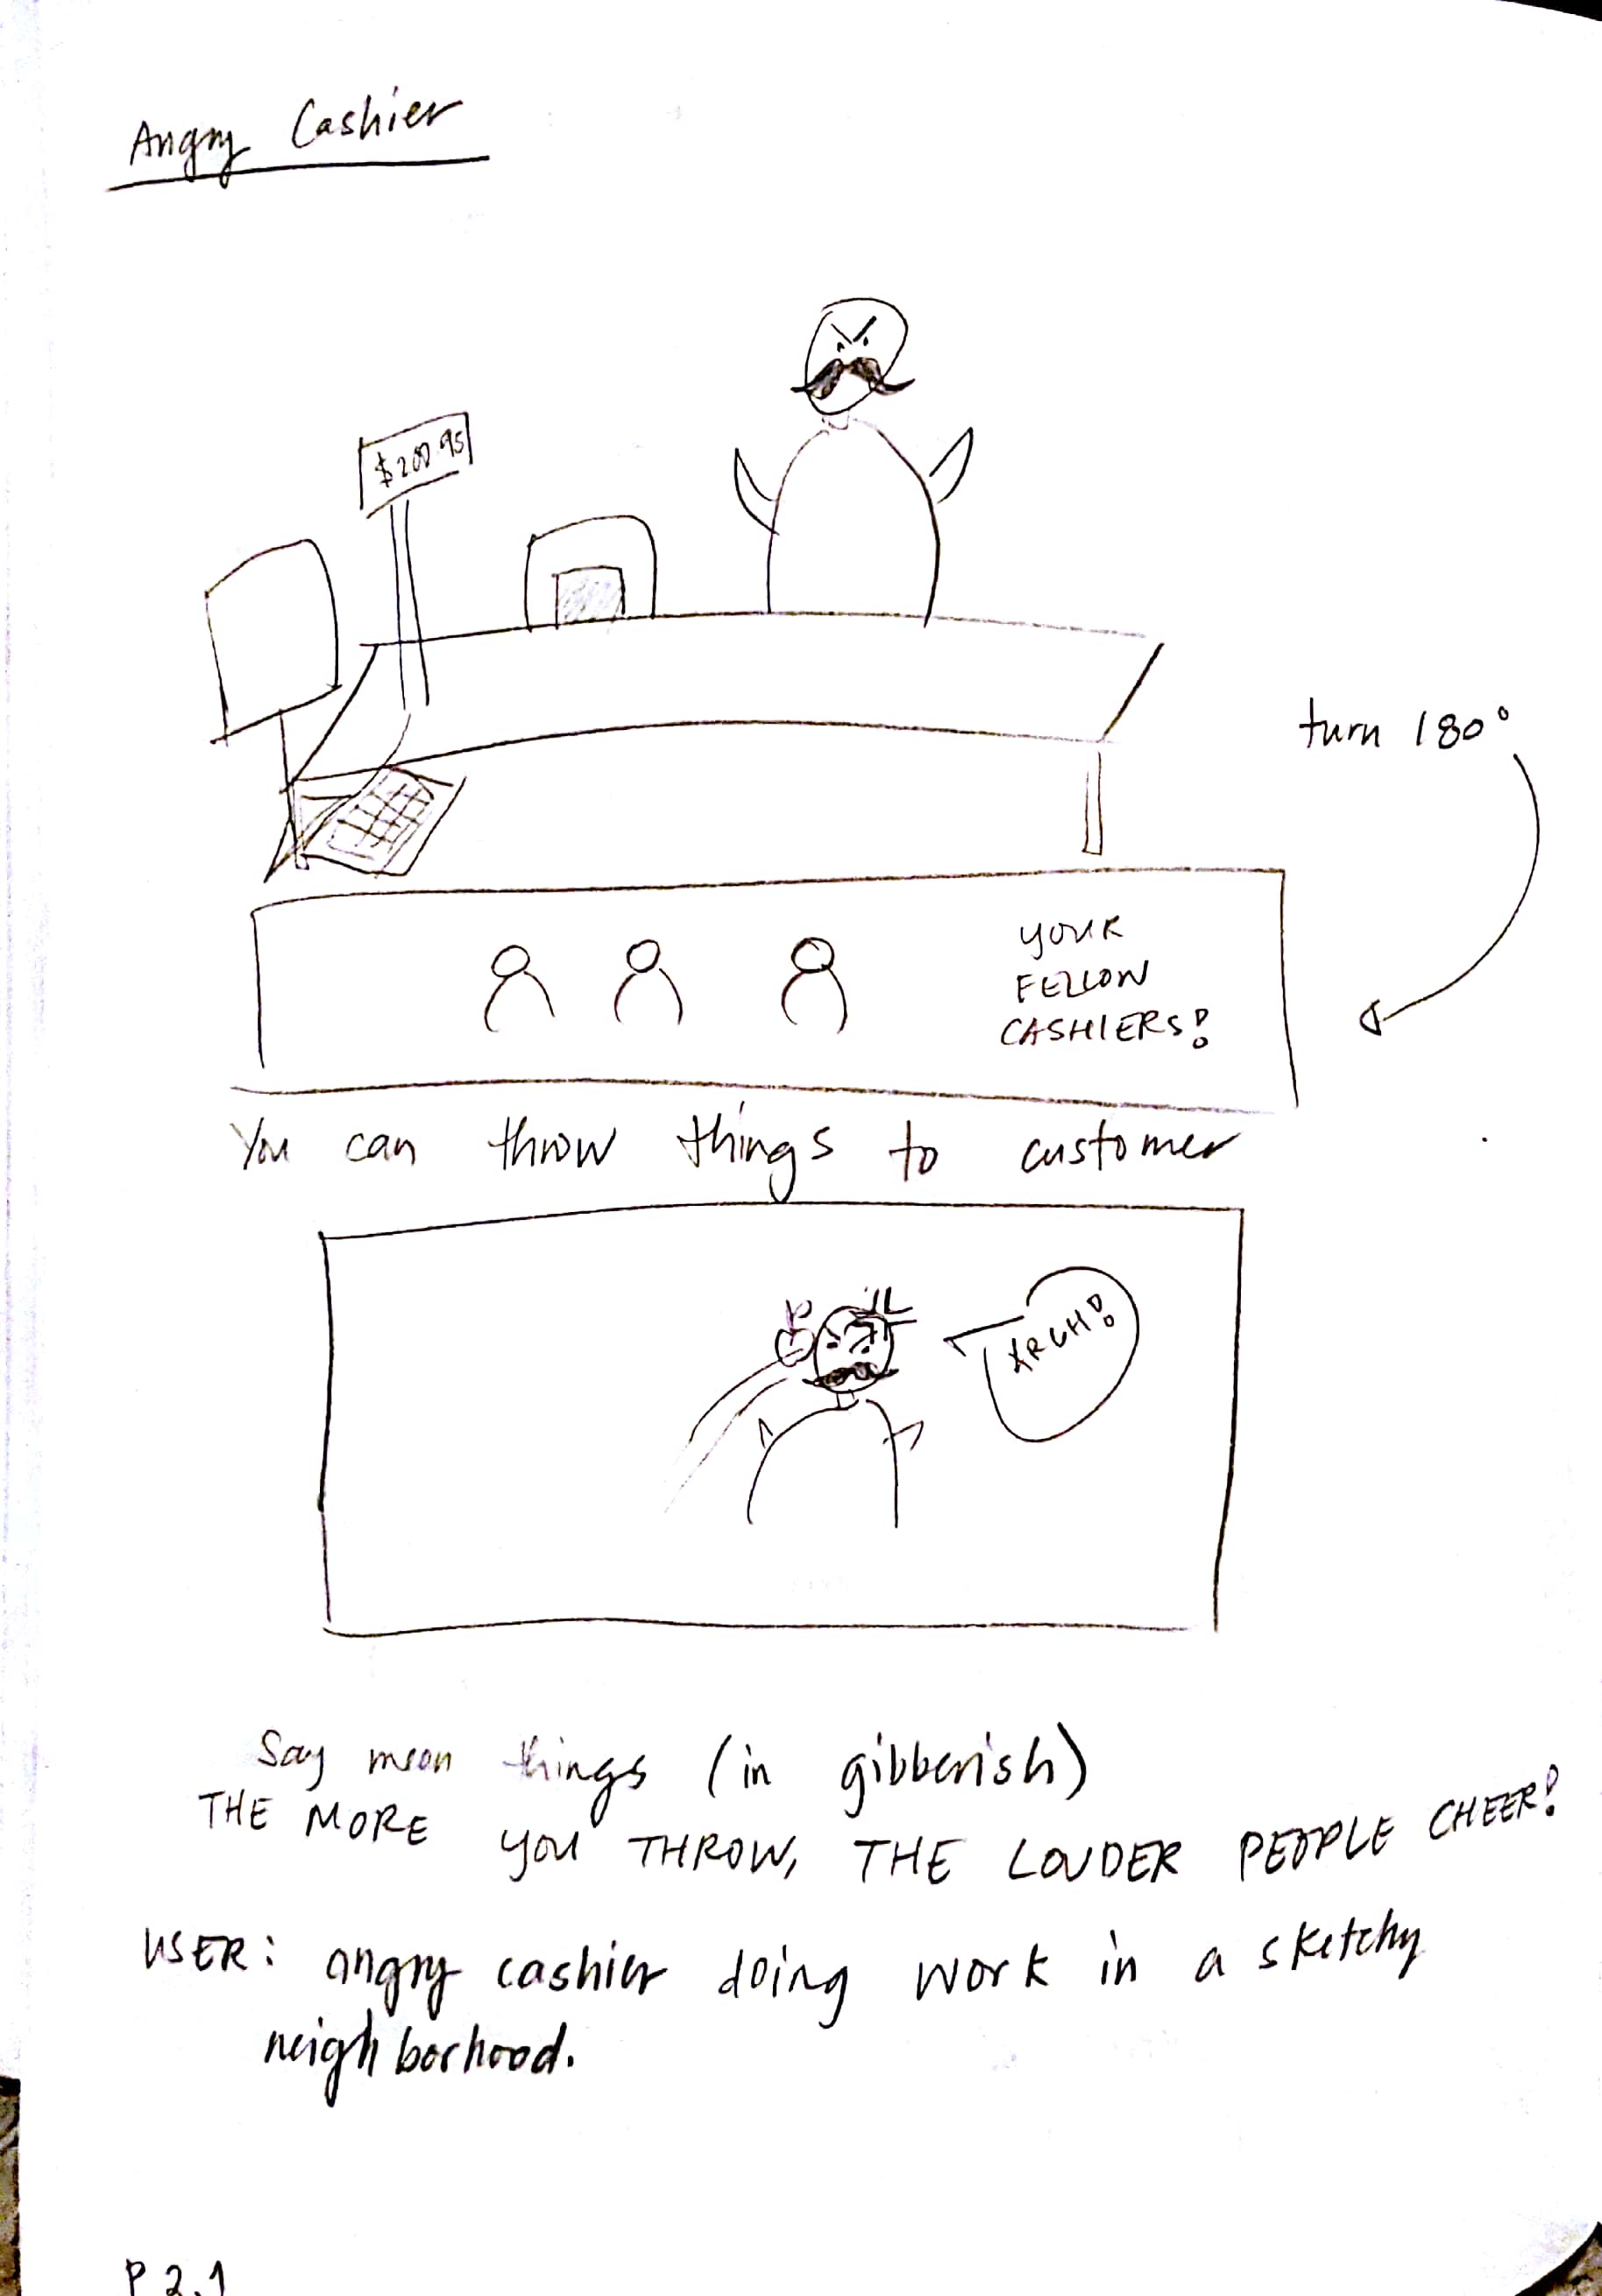 Angry Cashier
$200.95
turn 180°
YOUR
FELLOW
CASHIERS!
You can throw things to customer
ARGH!
Say mean things (in gibberish)
THE MORE YOU THROW, THE LOUDER PEOPLE CHEER!
USER: angry cashier doing work in a sketchy
neighborhood.
P 2.1